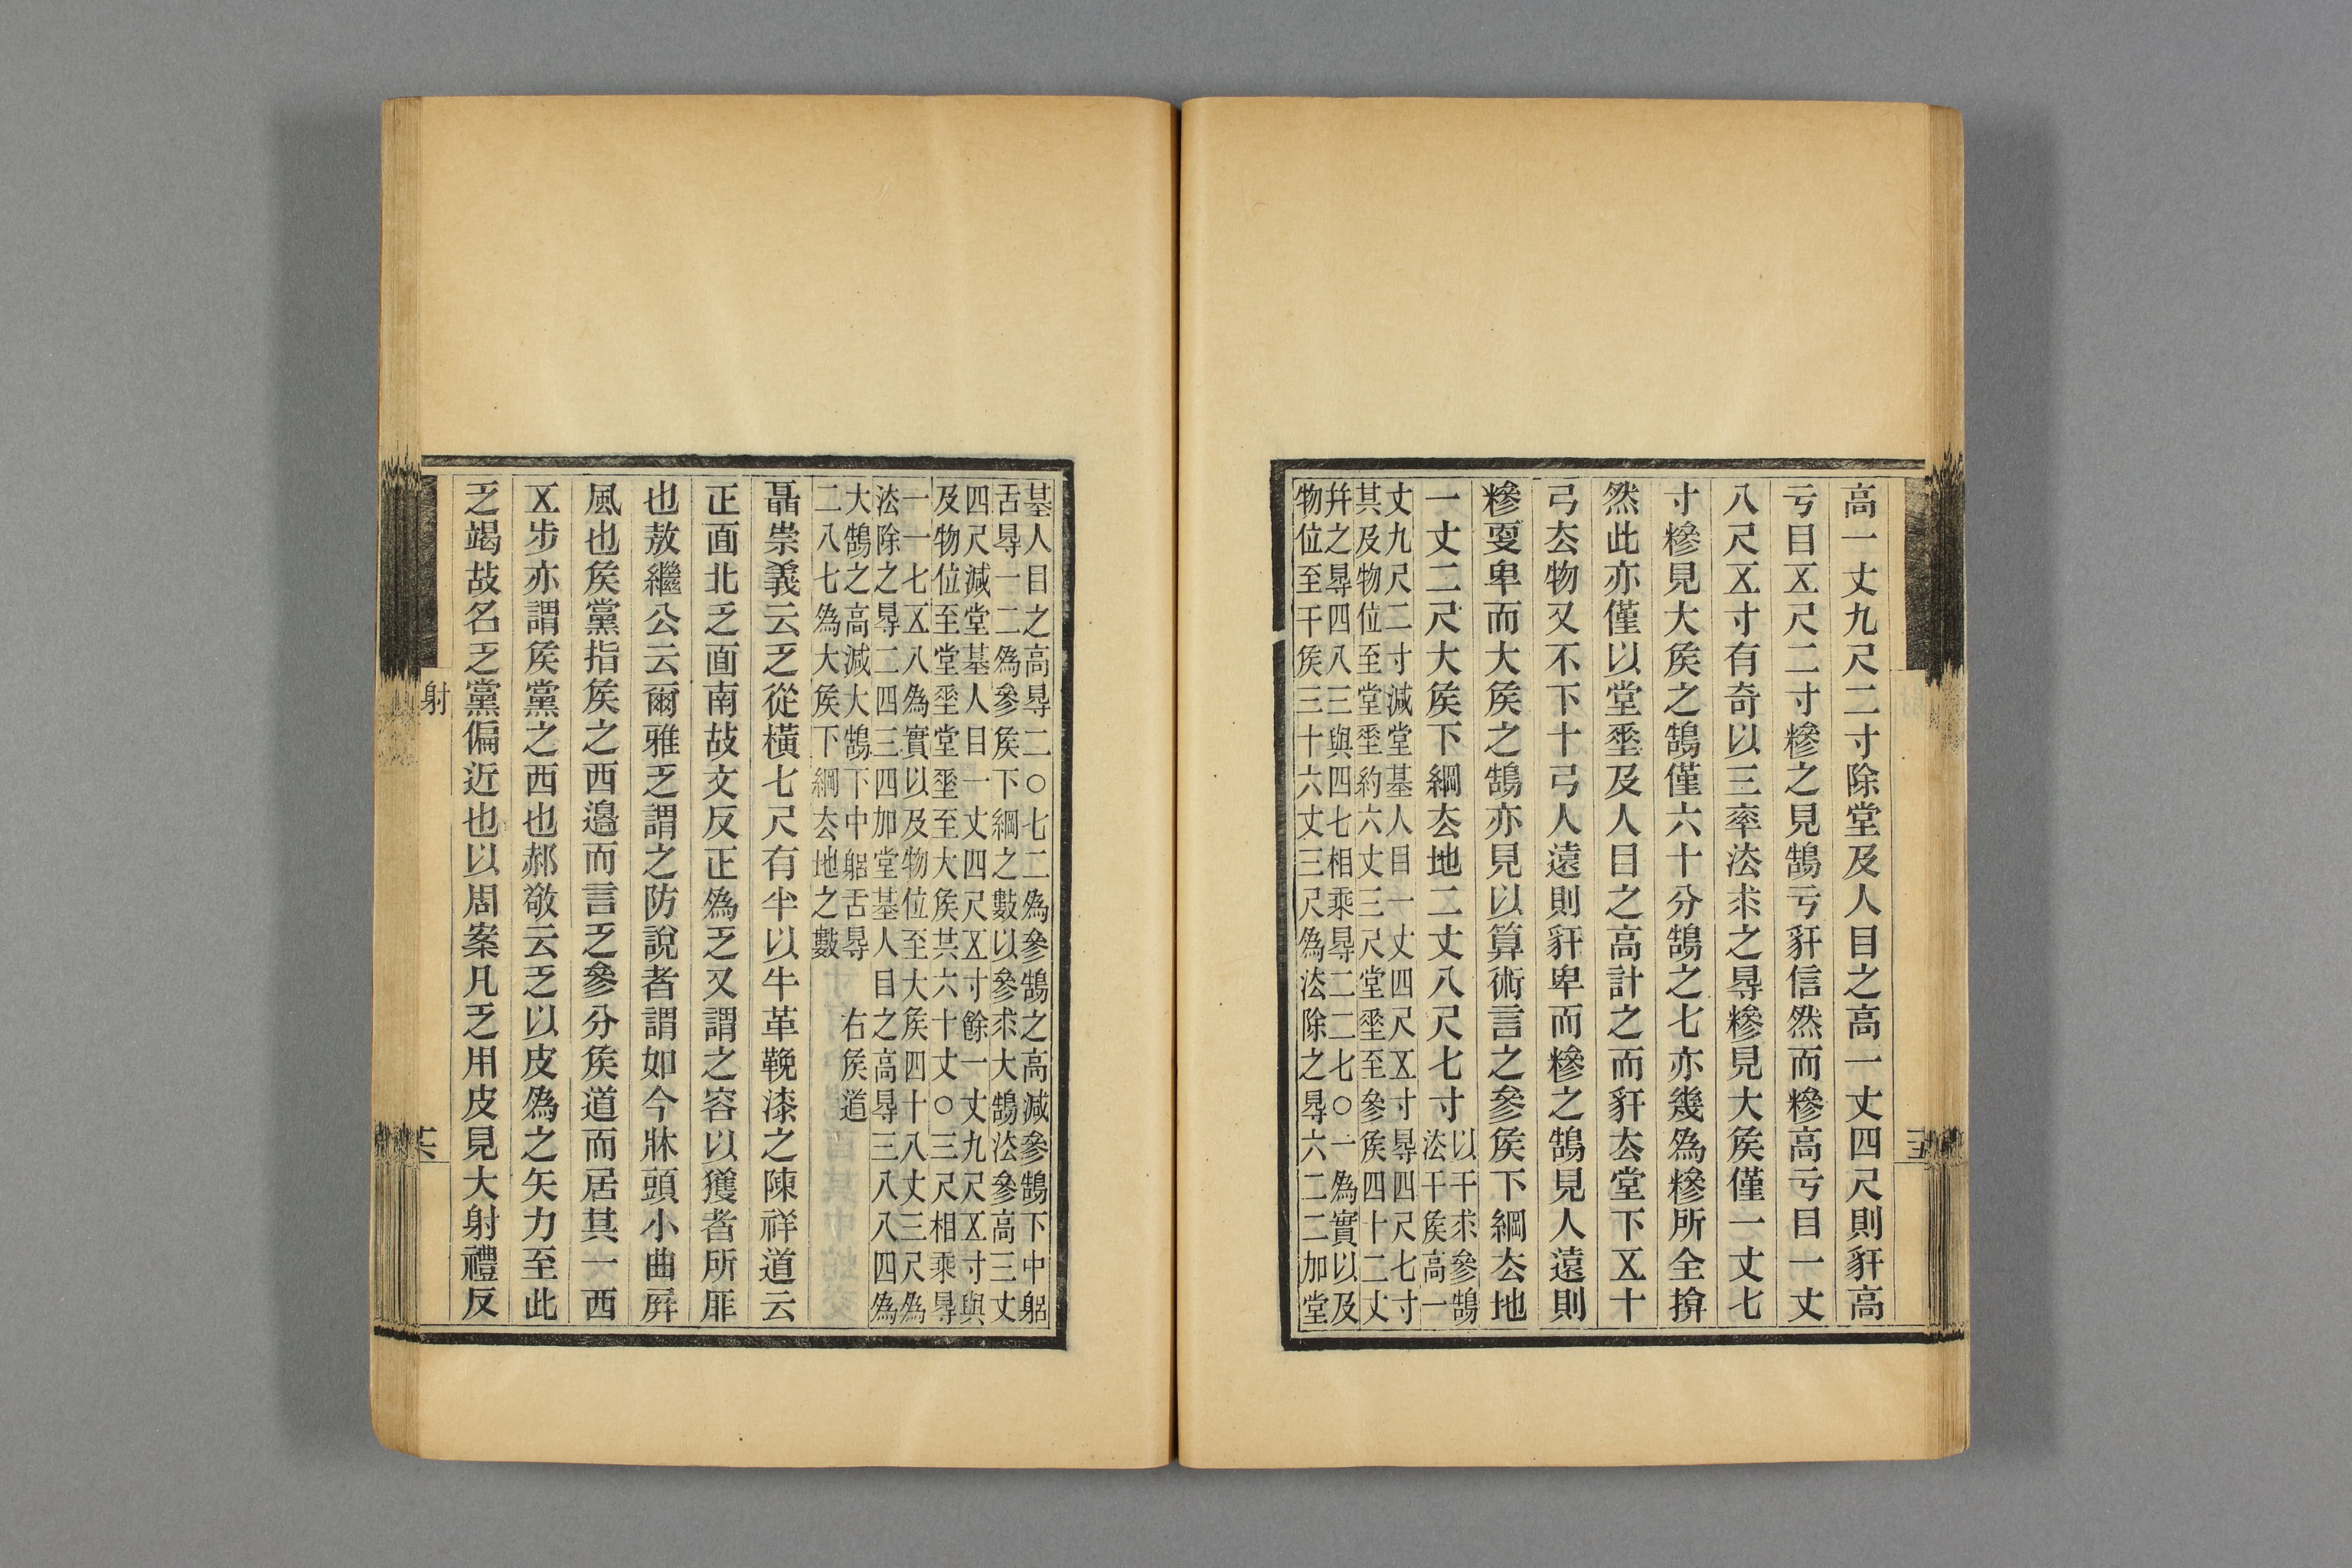 高一丈九尺二寸除堂及人目之高一丈四尺則豻高
亏目㐅尺二寸糝之見鵠亏豻信然而糝高亏目一丈
八尺㐅寸有奇以三率㳒求之㝵糝見大矦僅一丈七
寸糝見大矦之鵠僅六十分鵠之七亦幾為糝所全揜
然此亦僅以堂坙及人目之高計之而豻厺堂下㐅十
弓厺物又不下十弓人遠則豻卑而糝之鵠見人遠則
糝叓卑而大矦之鵠亦見以算術言之參矦下綱厺地
一丈二尺大矦下綱厺地二丈八尺七寸
以干求參鵠
㳒干矦高一
丈九尺二寸減堂基人目一丈四尺㐅寸㝵四尺七寸
其及物位至堂坙約六丈三尺堂坙至參矦四十二丈
幷之㝵四八三與四七相乘㝵二二七〇一為實以及
物位至干矦三十六丈三尺為㳒除之㝵六二二加堂
基人目之高㝵二〇七二為參鵠之高減參鵠下中躳
舌㝵一二為參矦下綱之數以參求大鵠㳒參高三丈
四尺減堂基人目一丈四尺㐅寸餘一丈九尺㐅寸與
及物位至堂坙堂坙至大矦共六十丈〇三尺相乘㝵
一一七㐅八為實以及物位至大矦四十八丈三尺為
㳒除之㝵二四三四加堂基人目之高㝵三八八四為
大鵠之高減大鵠下中躳舌㝵
二八七為大矦下綱厺地之數
右矦道
聶崇義云乏從橫七尺有半以牛革鞔漆之陳祥道云
正面北乏面南故文反正為乏又謂之容以獲者所厞
也敖繼公云爾雅乏謂之防說者謂如今牀頭小曲屛
風也矦黨指矦之西邊而言乏參分矦道而居其一西
㐅步亦謂矦黨之西也郝敬云乏以皮為之矢力至此
乏竭故名乏黨偏近也以周案凡乏用皮見大射禮反
射